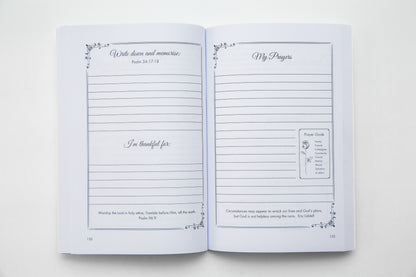 Write down and memorise:
Psalm 34:17-18
I'm thankful for:
Worship the Lord in holy attire; Tremble before Him, all the earth.
Psalm 96:9
My Prayers
Prayer Guide
Circumstances may appear to wreck our lives and God's plans,
but God is not helpless among the ruins. Eric Liddell